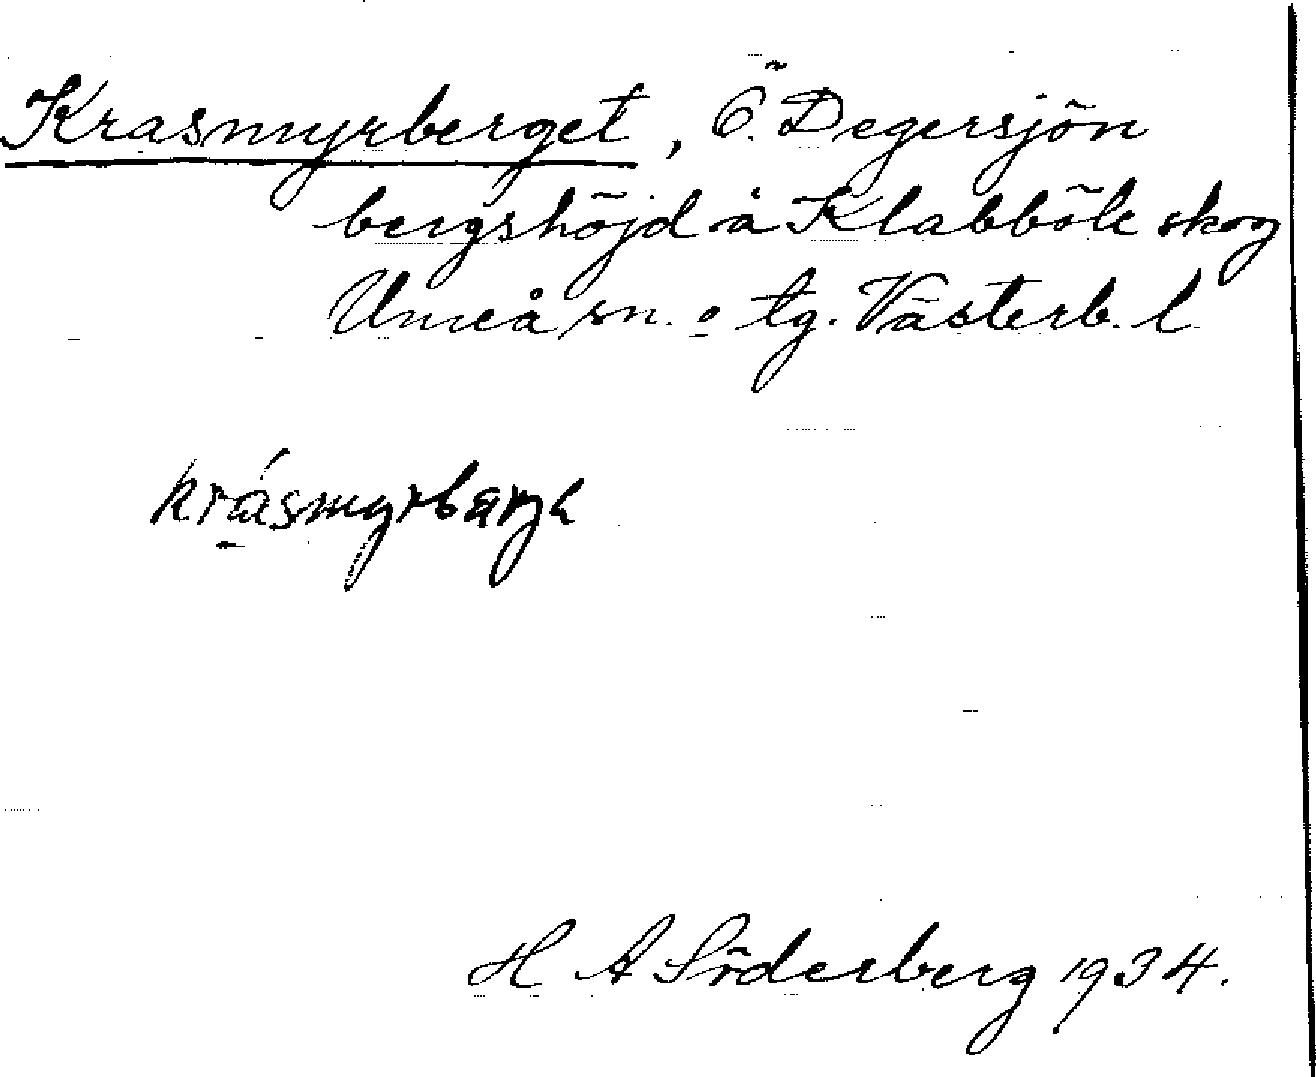 Krasmyrberget, Ö. Degersjön
bergshöjd å Klabböle skog
Umeå sn. o tg. Västerb. l
krásmyrbærjə
H A Söderberg 1934.